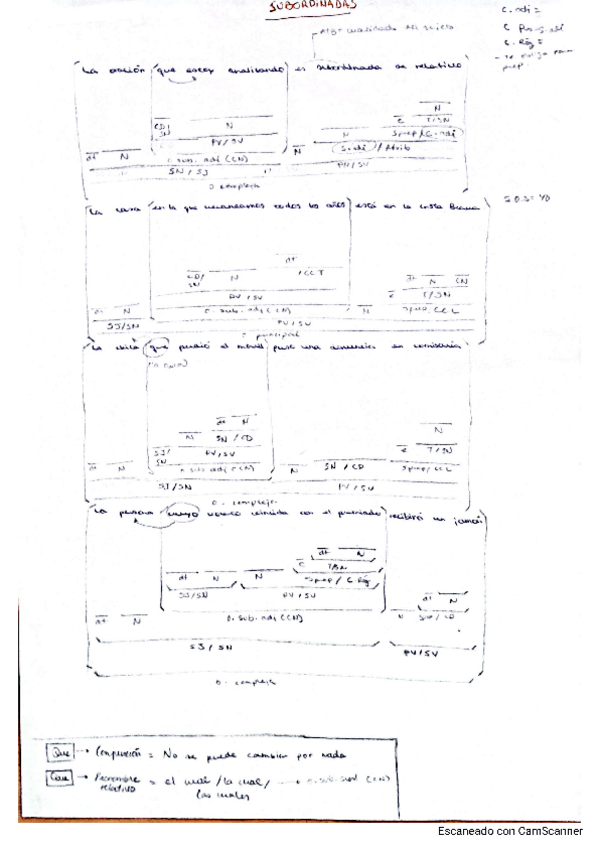 SUBORDINADAS
C. adi =
C. Rég =
La oración que estoy analizando es subordinada de relativo
N
C T/SN
CD/ SN N N Sprep/C. adi
PV/SV S.adi / Atrib
dt N O. sub. adj (CN) N
SN / SJ PN/SV
O. compleja
La casa en la que veraneamos todos los años está en la costa Blanca
dt
CD/ SN N /CCT dt N CN
PV / SV E T/SN
N O. sub. adj (CN) N Sprep/CCL
SJ/SN PV/SV
O. principal
La chica que perdió el móvil puso una denuncia en comisaría
dt N
N SN / CD N
SJ/ SN PV/SV E T/SN
dt N O. sub adj (CN) N SN / CD Sprep/CCL
SJ/SN PV/SV
O. compleja
La persona cuyo número coincida con el premiado recibirá un jamón
dt N
E T/SN
dt N N Sprep / C. Rég
SJ/SN PV/SV dt N
dt N O. sub. adj (CN) N SN / CD
SJ / SN PV/SV
O. compleja
Que → Conjunción = No se puede cambiar por nada
Que → Pronombre relativo = el cual /la cual/ las cuales
Escaneado con CamScanner